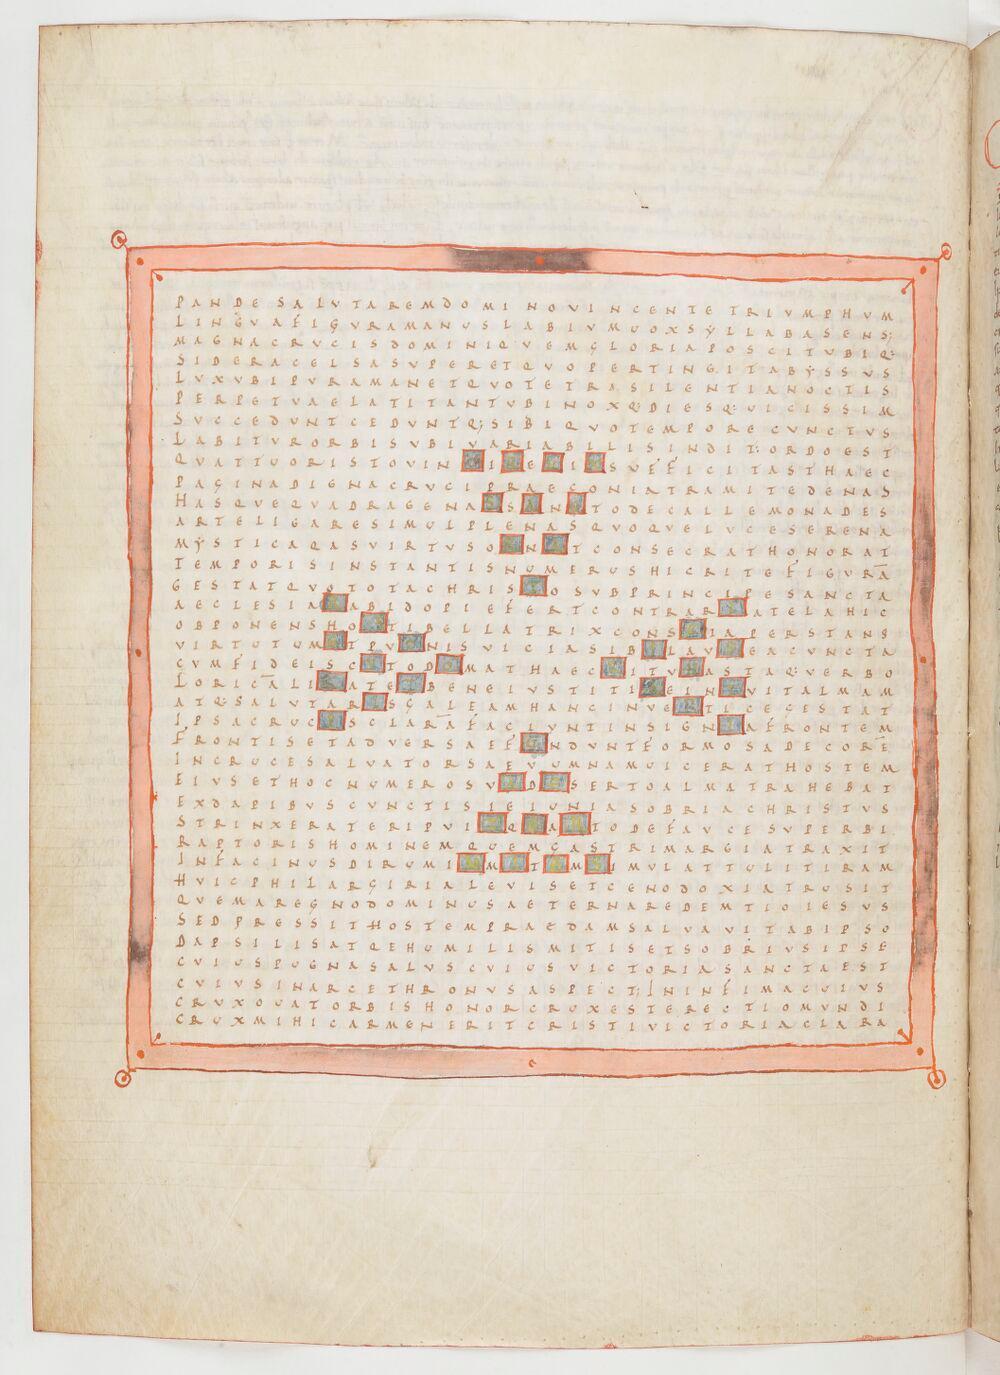 PANDE SALVTAREM DOMINO VINCENTE TRIVMPHVM
LINGVA FIGVRA MANUS LABIVM UOX SYLLABA SENS;
MAGNA CRVCIS DOMINI QVEM GLORIA POSCIT VBIQ:
SIDERA CELSA SVPER ET QVO PERTINGIT ABYSSVS
LVX VBI PVRA MANET QVO TETRA SILENTIA NOCTIS
PERPETVAE LATITANT VBI NOXQ: DIESQ: UICISSIM
SVCCEDVNT CEDVNTQ; SIBI QVO TEMPORE CVNCTVS
LABITVR ORBIS VBI VARIABILIS INDIT: ORDO EST
QVATTVOR ISTO VIN I E I SVFFICIT AST HAEC
PAGINA DIGNA CRVCI PRAECONIA TRAMITE DENAS
HASQVE QVADRAGENAS SANTO DE CALLE MONADES
ARTE LIGARE SIMUL PLENAS QVOQVE LVCE SERENA
MYSTICA QAS VIRTVS O N T CONSECRAT HONORAT
TEMPORIS INSTANTIS NUMERUS HIC RITE FIGVRA
GESTAT QVO TOTA CHRISTO SVB PRINCIPE SANCTA
AECLESIA ABIDO PIE FERT CONTRARIA TELA HIC
OBPONENS HOSTI BELLATRIX CONSCIA PERSTANS
VIRTUTUM TPVGNIS VICIA SIB LAV EACVNCTA
CVM FIDEI SCVTO DOGMAT HAEC ITV ASTA Q: VERBO
LORICA LI ATE BENE IVSTITI E IN VITALMAM
ATQ SALVTARIS GALEAM HANC INVERTICE GESTAT
IPSA CRUCIS CLARA FACIVNT INSIGNIA FRONTEM
FRONTIS ET ADVERSAE FFUNDVNT FORMOSA DECORE
IN CRUCE SALVATOR SAEUUM NAM UICERAT HOSTEM
EIVS ET HOC NUMEROS V D SERTO ALMA TRAHEBAT
EX DAPIBVS CVNCTIS IEIUNIA SOBRIA CHRISTVS
STRINXERAT ERIPVI Q A TO DE FAVCE SVPERBI
RAPTORIS HOMINEM QUEM GASTRIMARGIA TRAXIT
IN FACINUS DIRUM I M T M IMVLATTVLIT IRAM
HVIC PHILARGIRIA LEVIS ET CENODOXIA TRUSIT
QVEM A REGNO DOMINUS AETERNA REDEMTIO IESVS
SED PRESSIT HOSTEM PRAEDAM SALVAVIT AB IPSO
DAPSILIS ATQE HUMILIS MITIS ET SOBRIVS IPSE
CVIVS PVGNA SALVS CVIVS VICTORIA SANCTA EST
CVIVS IN ARCE THRONVS ASPECT; IN INFIMA CVIVS
CRVX OVAT ORBIS HONOR CRVX EST ERECTIO MVNDI
CRVX MIHI CARMEN ERIT CRISTI VICTORIA CLARA